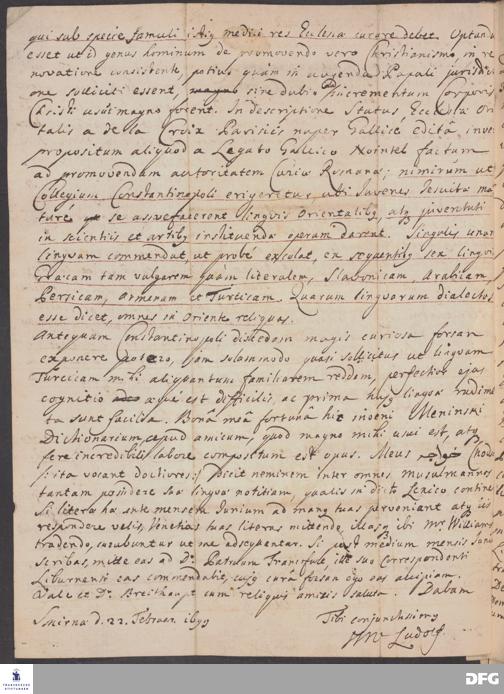 qui sub specie famuli istiq medici res Ecclesiæ curare debet. Optand
esset ut id genus hominum de promovendo vero Christianismo, in re
novatione consistente, potius quam in augenda Papali jurisdicti
one solliciti essent, sine dubio incrementum corporis
Christi usui magno forent. In descriptione Status Ecclesiæ Ori
talis a de la Croix Parisiis nuper Gallicè edita, inve
propositum aliquod a Legato Gallico Nointel factum
ad promovendam autoritatem Curiæ Romanæ; nimirum ut
Collegium Constantinopoli erigeretur, ubi Juvenes Jesuitæ ma
ture se assuefacerent linguis orientalibq, atq juventuti
in scientiis et artibq instituendæ operam darent. Singulis unam
linguam commendat, ut probe excolat, ex sequentibq sex linguis
Græcam tam vulgarem quam literalem, Slavonicam, Arabicam,
Persicam, Armenam et Turcicam. Quarum linguarum dialectos
esse dicet, omnes in Oriente reliquas.
Antequam Constantinopoli discedam magis curiosa forsan
exponere potero, jam solummodo quasi sollicitus ut linguam
Turcicam mihi aliquantum familiarem reddam, perfectior ejus
cognitio æque est difficilis, ac prima hujq linguæ rudime
ta sunt facilia. Bonâ meâ fortunâ hic inveni Meninski
Dictionarium apud amicum, quod magno mihi usui est, atq
fere incredibili labore compositum est opus. Meus خواجه Chow
/: ita vocant doctores :/ dicit neminem inter omnes musulmannos
tantam possidere suæ linguæ notitiam, qualis in dicto Lexico contine
Si literæ hæ ante mensem Junium ad manq tuas proveniant atq iis
respondere velis, Venetias tuas literas mittendo, illasq ibi Mr Williams
tradendo, curabuntur ut me adsequantur. Si post medium mensis Junii
scribas, mitte eas ad Dn Patruum Francofurt, ille suo Correspondenti
Liburnensi eas commendabit, cujq cura forsan eas accipiam.
Vale et Dn Breithaupt cum reliquis amicis saluta. Dabam
Smirnæ d. 22. Februar. 1699
Tibi conjunctissimq
HW Ludolf
FRANCKESCHE STIFTUNGEN
DFG